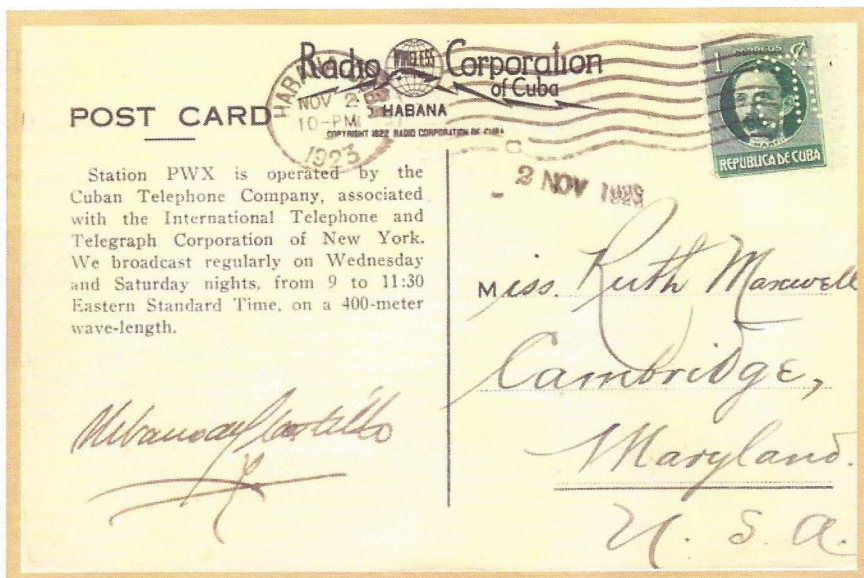 Radio WIRELESS Corporation
of Cuba
HABANA
COPYRIGHT 1922 RADIO CORPORATION OF CUBA
POST CARD
HABANA
NOV 2
10-PM
1923
1
CORREOS
REPUBLICA DE CUBA
2 NOV 1923
Station PWX is operated by the
Cuban Telephone Company, associated
with the International Telephone and
Telegraph Corporation of New York.
We broadcast regularly on Wednesday
and Saturday nights, from 9 to 11:30
Eastern Standard Time, on a 400-meter
wave-length.
Miss. Ruth Maxwell
Cambridge,
Maryland.
U. S. A.